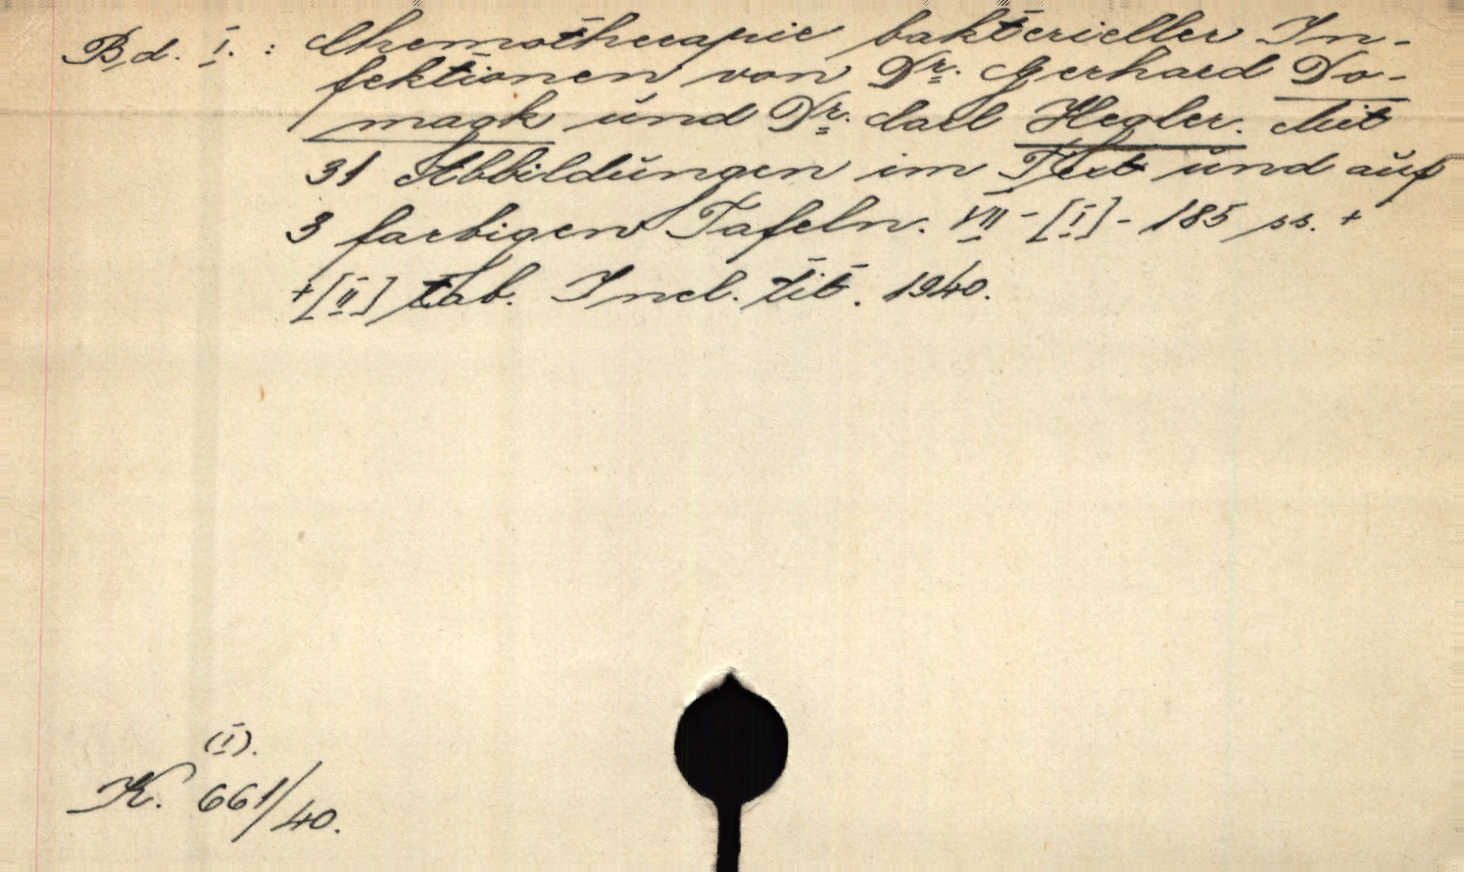 Bd. I. : Chemotherapie bakterieller In-
fektionen von Dr. Gerhard Do-
magk und Dr. Carl Hegler. Mit
31 Abbildungen im Text und auf
3 farbigen Tafeln. VIII - [I] - 185 ss. +
+ [II] tab. Incl. tit. 1940.
(I).
K. 661/40.